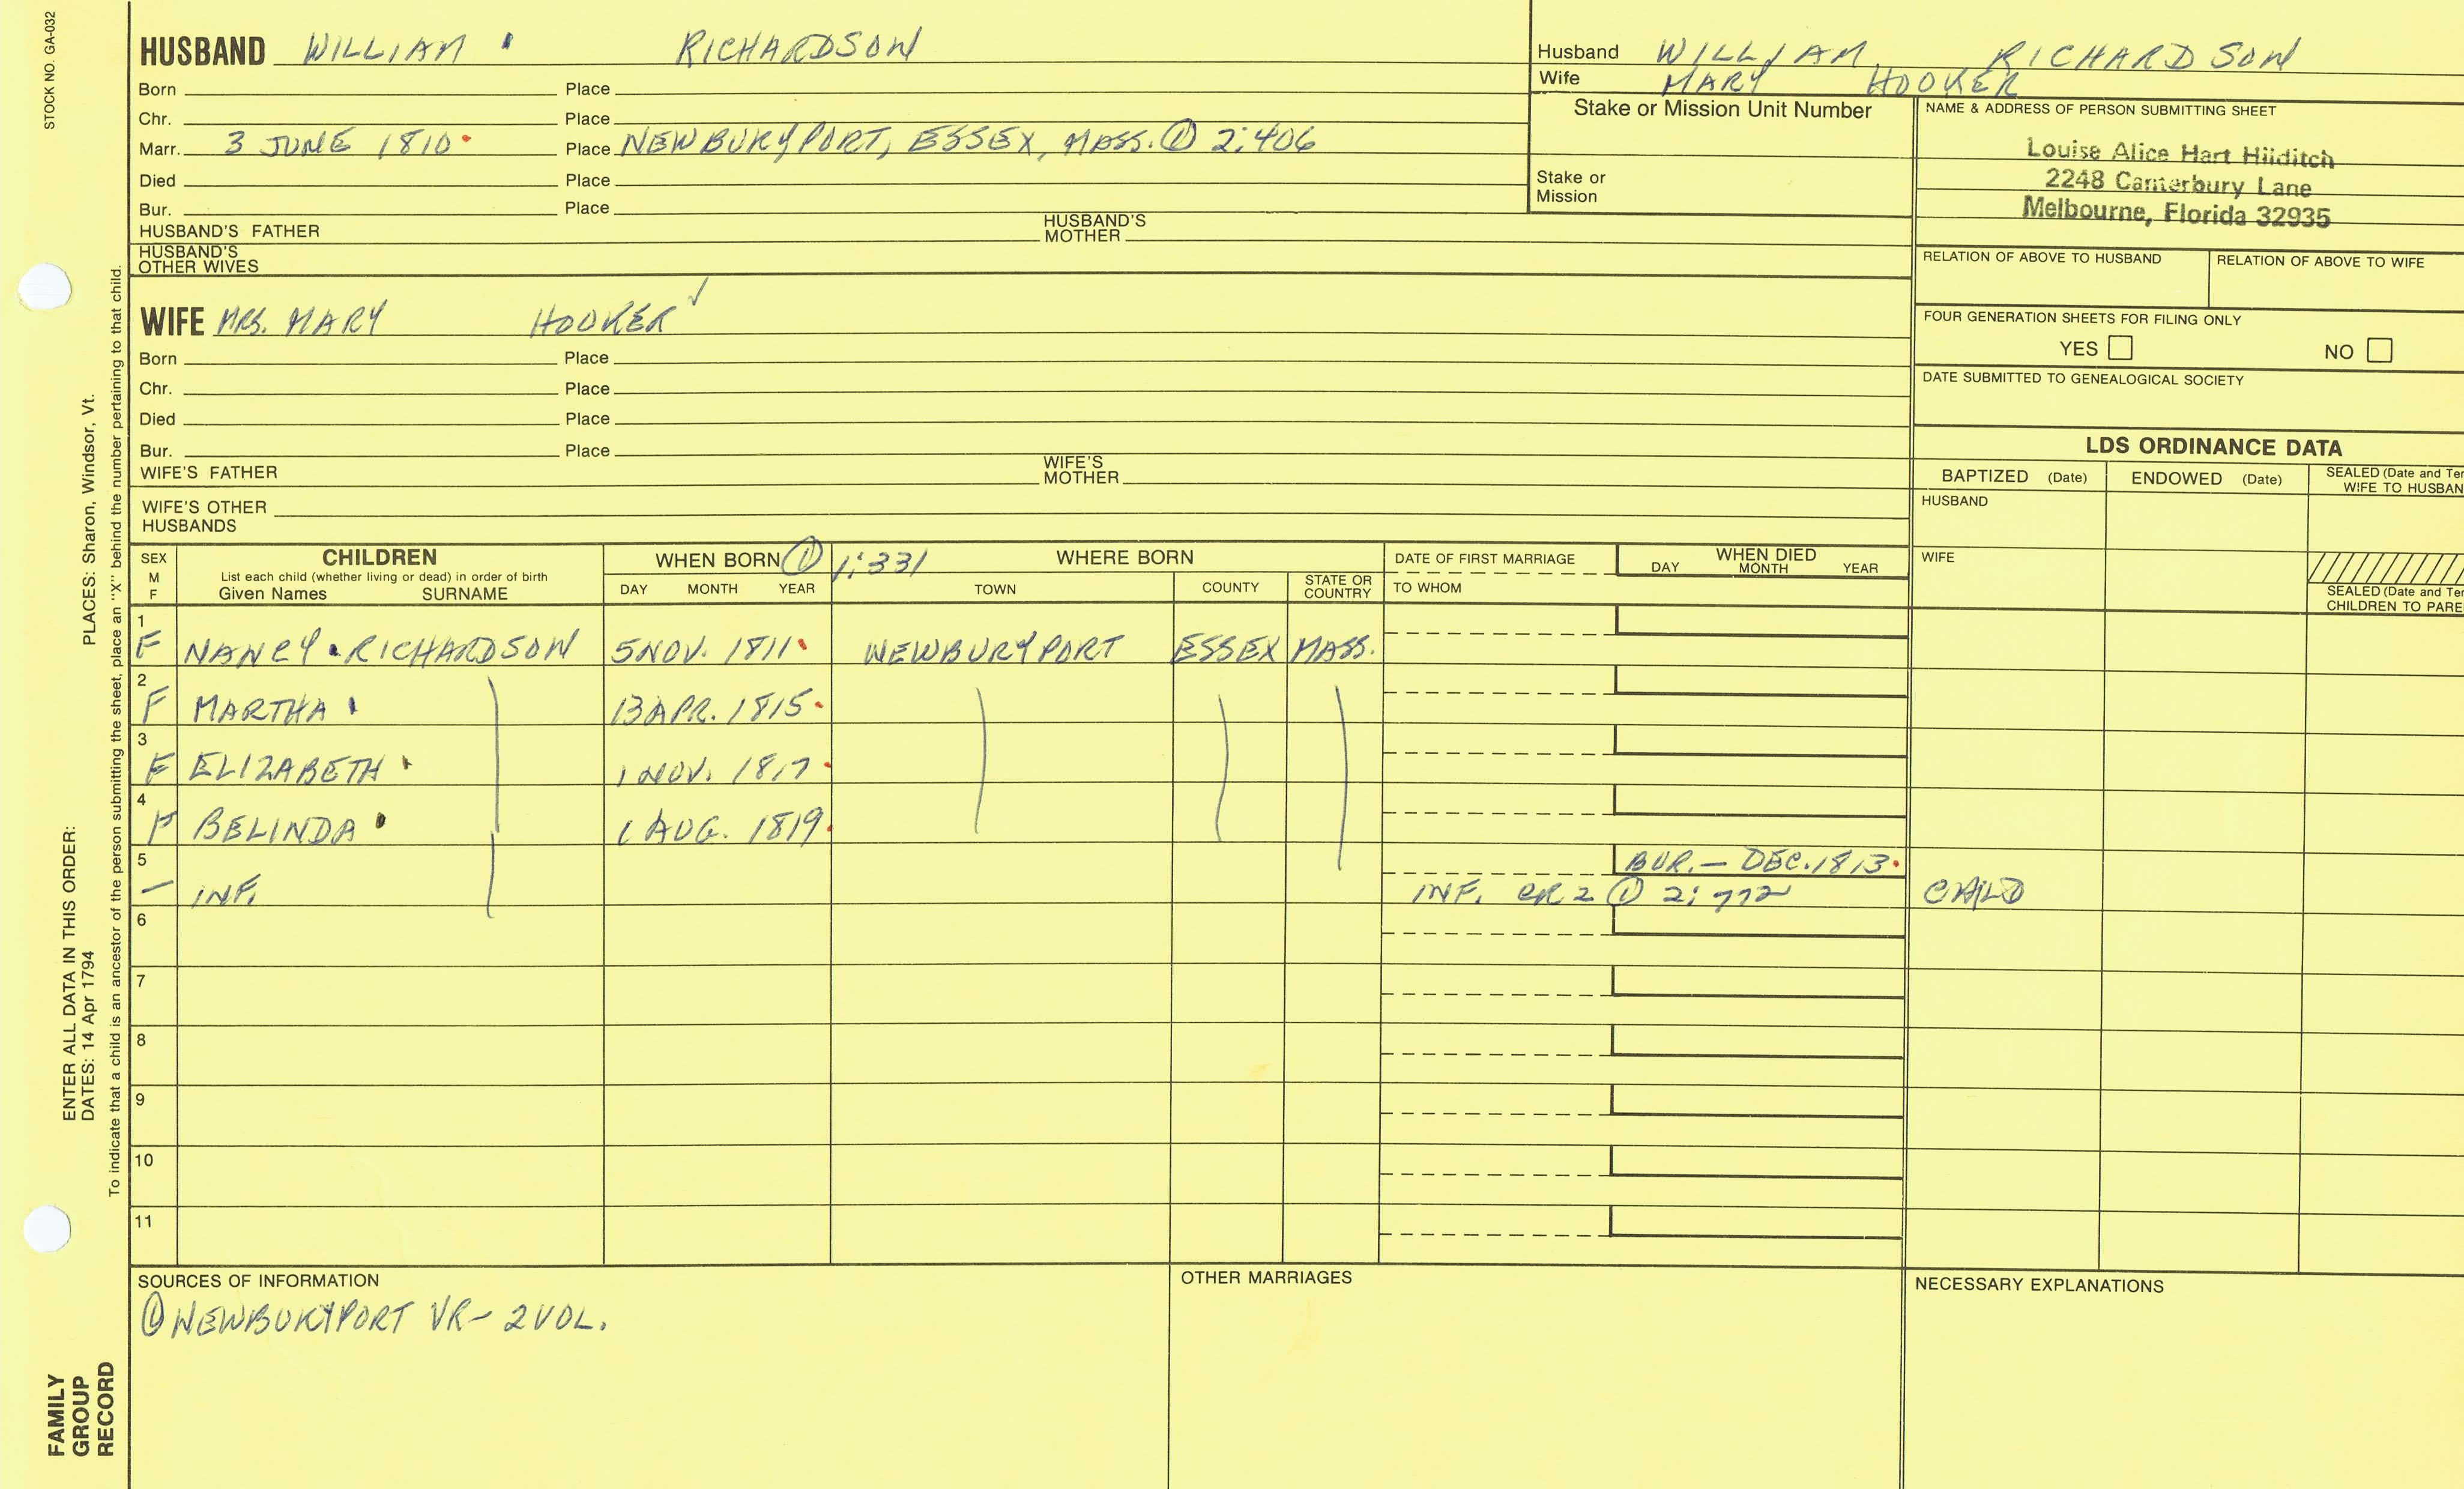 STOCK NO. GA-032
HUSBAND WILLIAM RICHARDSON
Born Place
Chr. Place
Marr. 3 JUNE 1810 Place NEWBURYPORT, ESSEX, MASS. ① 2:406
Died Place
Bur. Place
HUSBAND'S FATHER HUSBAND'S MOTHER
HUSBAND'S OTHER WIVES
Husband WILLIAM RICHARDSON
Wife MARY HOOKER
Stake or Mission Unit Number
Stake or Mission
NAME & ADDRESS OF PERSON SUBMITTING SHEET
Louise Alice Hart Hilditch
2248 Canterbury Lane
Melbourne, Florida 32935
RELATION OF ABOVE TO HUSBAND RELATION OF ABOVE TO WIFE
FOUR GENERATION SHEETS FOR FILING ONLY
YES NO
DATE SUBMITTED TO GENEALOGICAL SOCIETY
WIFE MRS. MARY HOOKER ✓
Born Place
Chr. Place
Died Place
Bur. Place
WIFE'S FATHER WIFE'S MOTHER
WIFE'S OTHER HUSBANDS
LDS ORDINANCE DATA
BAPTIZED (Date) ENDOWED (Date) SEALED (Date and Tem
WIFE TO HUSBAN
HUSBAND
WIFE
SEALED (Date and Tem
CHILDREN TO PARE
SEX M F
CHILDREN
List each child (whether living or dead) in order of birth
Given Names SURNAME
WHEN BORN ① 1:331
DAY MONTH YEAR
WHERE BORN
TOWN COUNTY STATE OR COUNTRY
DATE OF FIRST MARRIAGE
TO WHOM
WHEN DIED
DAY MONTH YEAR
1 F NANCY RICHARDSON 5 NOV. 1811 NEWBURYPORT ESSEX MASS.
2 F MARTHA 13 APR. 1815
3 F ELIZABETH 1 NOV. 1817
4 F BELINDA 1 AUG. 1819
5 — INF. BUR. — DEC. 1813
INF. CR 2 ① 2:772 CHILD
6
7
8
9
10
11
SOURCES OF INFORMATION
① NEWBURYPORT VR - 2 VOL.
OTHER MARRIAGES
NECESSARY EXPLANATIONS
PLACES: Sharon, Windsor, Vt.
ENTER ALL DATA IN THIS ORDER:
DATES: 14 Apr 1794
To indicate that a child is an ancestor of the person submitting the sheet, place an "X" behind the number pertaining to that child.
FAMILY
GROUP
RECORD